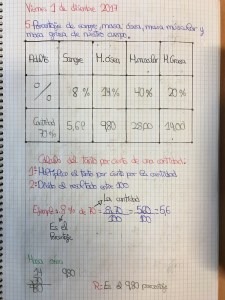 Viernes 1 de diciembre 2017
5- Porcentaje de sangre, masa ósea, masa muscular y
masa grasa de nuestro cuerpo.
Adulto Sangre M.ósea M.muscular M.Grasa
% 8 % 14 % 40 % 20 %
Cantidad 70 % 5,60 9,80 28,00 14,00
Cálculo del tanto por ciento de una cantidad.
1º Multiplico el tanto por ciento por la cantidad
2º Divido el resultado entre 100
La cantidad
Ejemplo: 8 % de 70 = 8·70 / 100 = 560 / 100 = 5,6
Es el
Porcentaje
Masa ósea
14 980
70
980 R= Es el 9,80 porcentaje